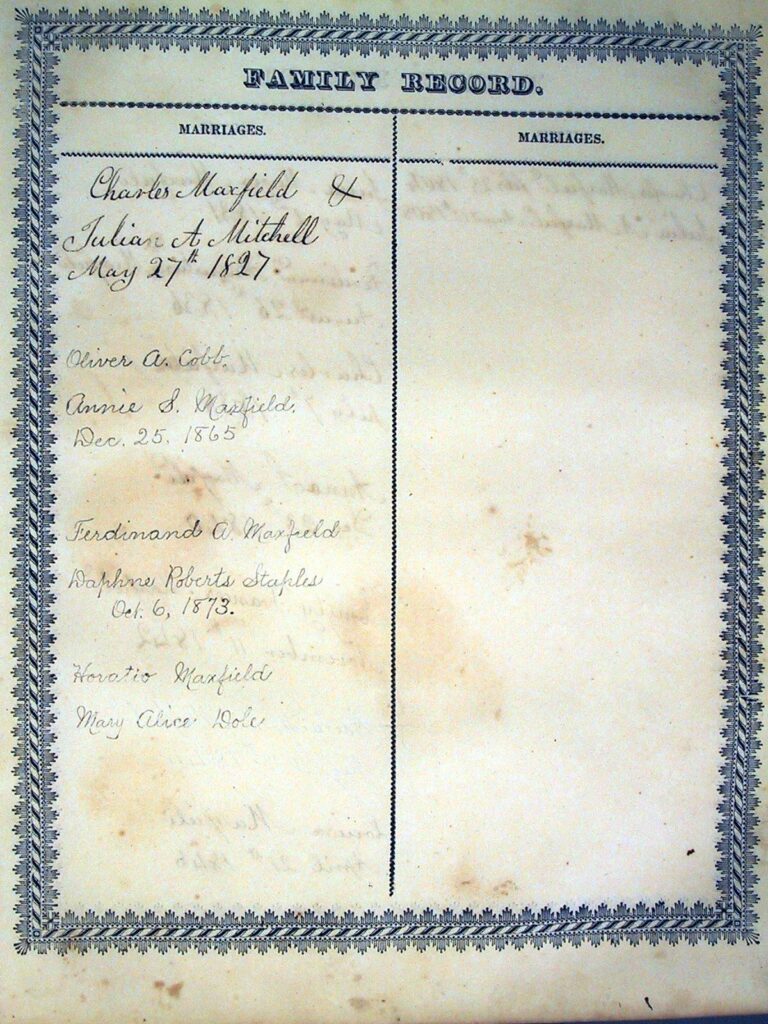 FAMILY RECORD.
MARRIAGES.
Charles Maxfield &
Julian A Mitchell
May 27th 1827
Oliver A. Cobb.
Annie S. Maxfield.
Dec. 25. 1865
Ferdinand A. Maxfield
Daphne Roberts Staples
Oct. 6, 1873.
Horatio Maxfield
Mary Alice Dole
MARRIAGES.